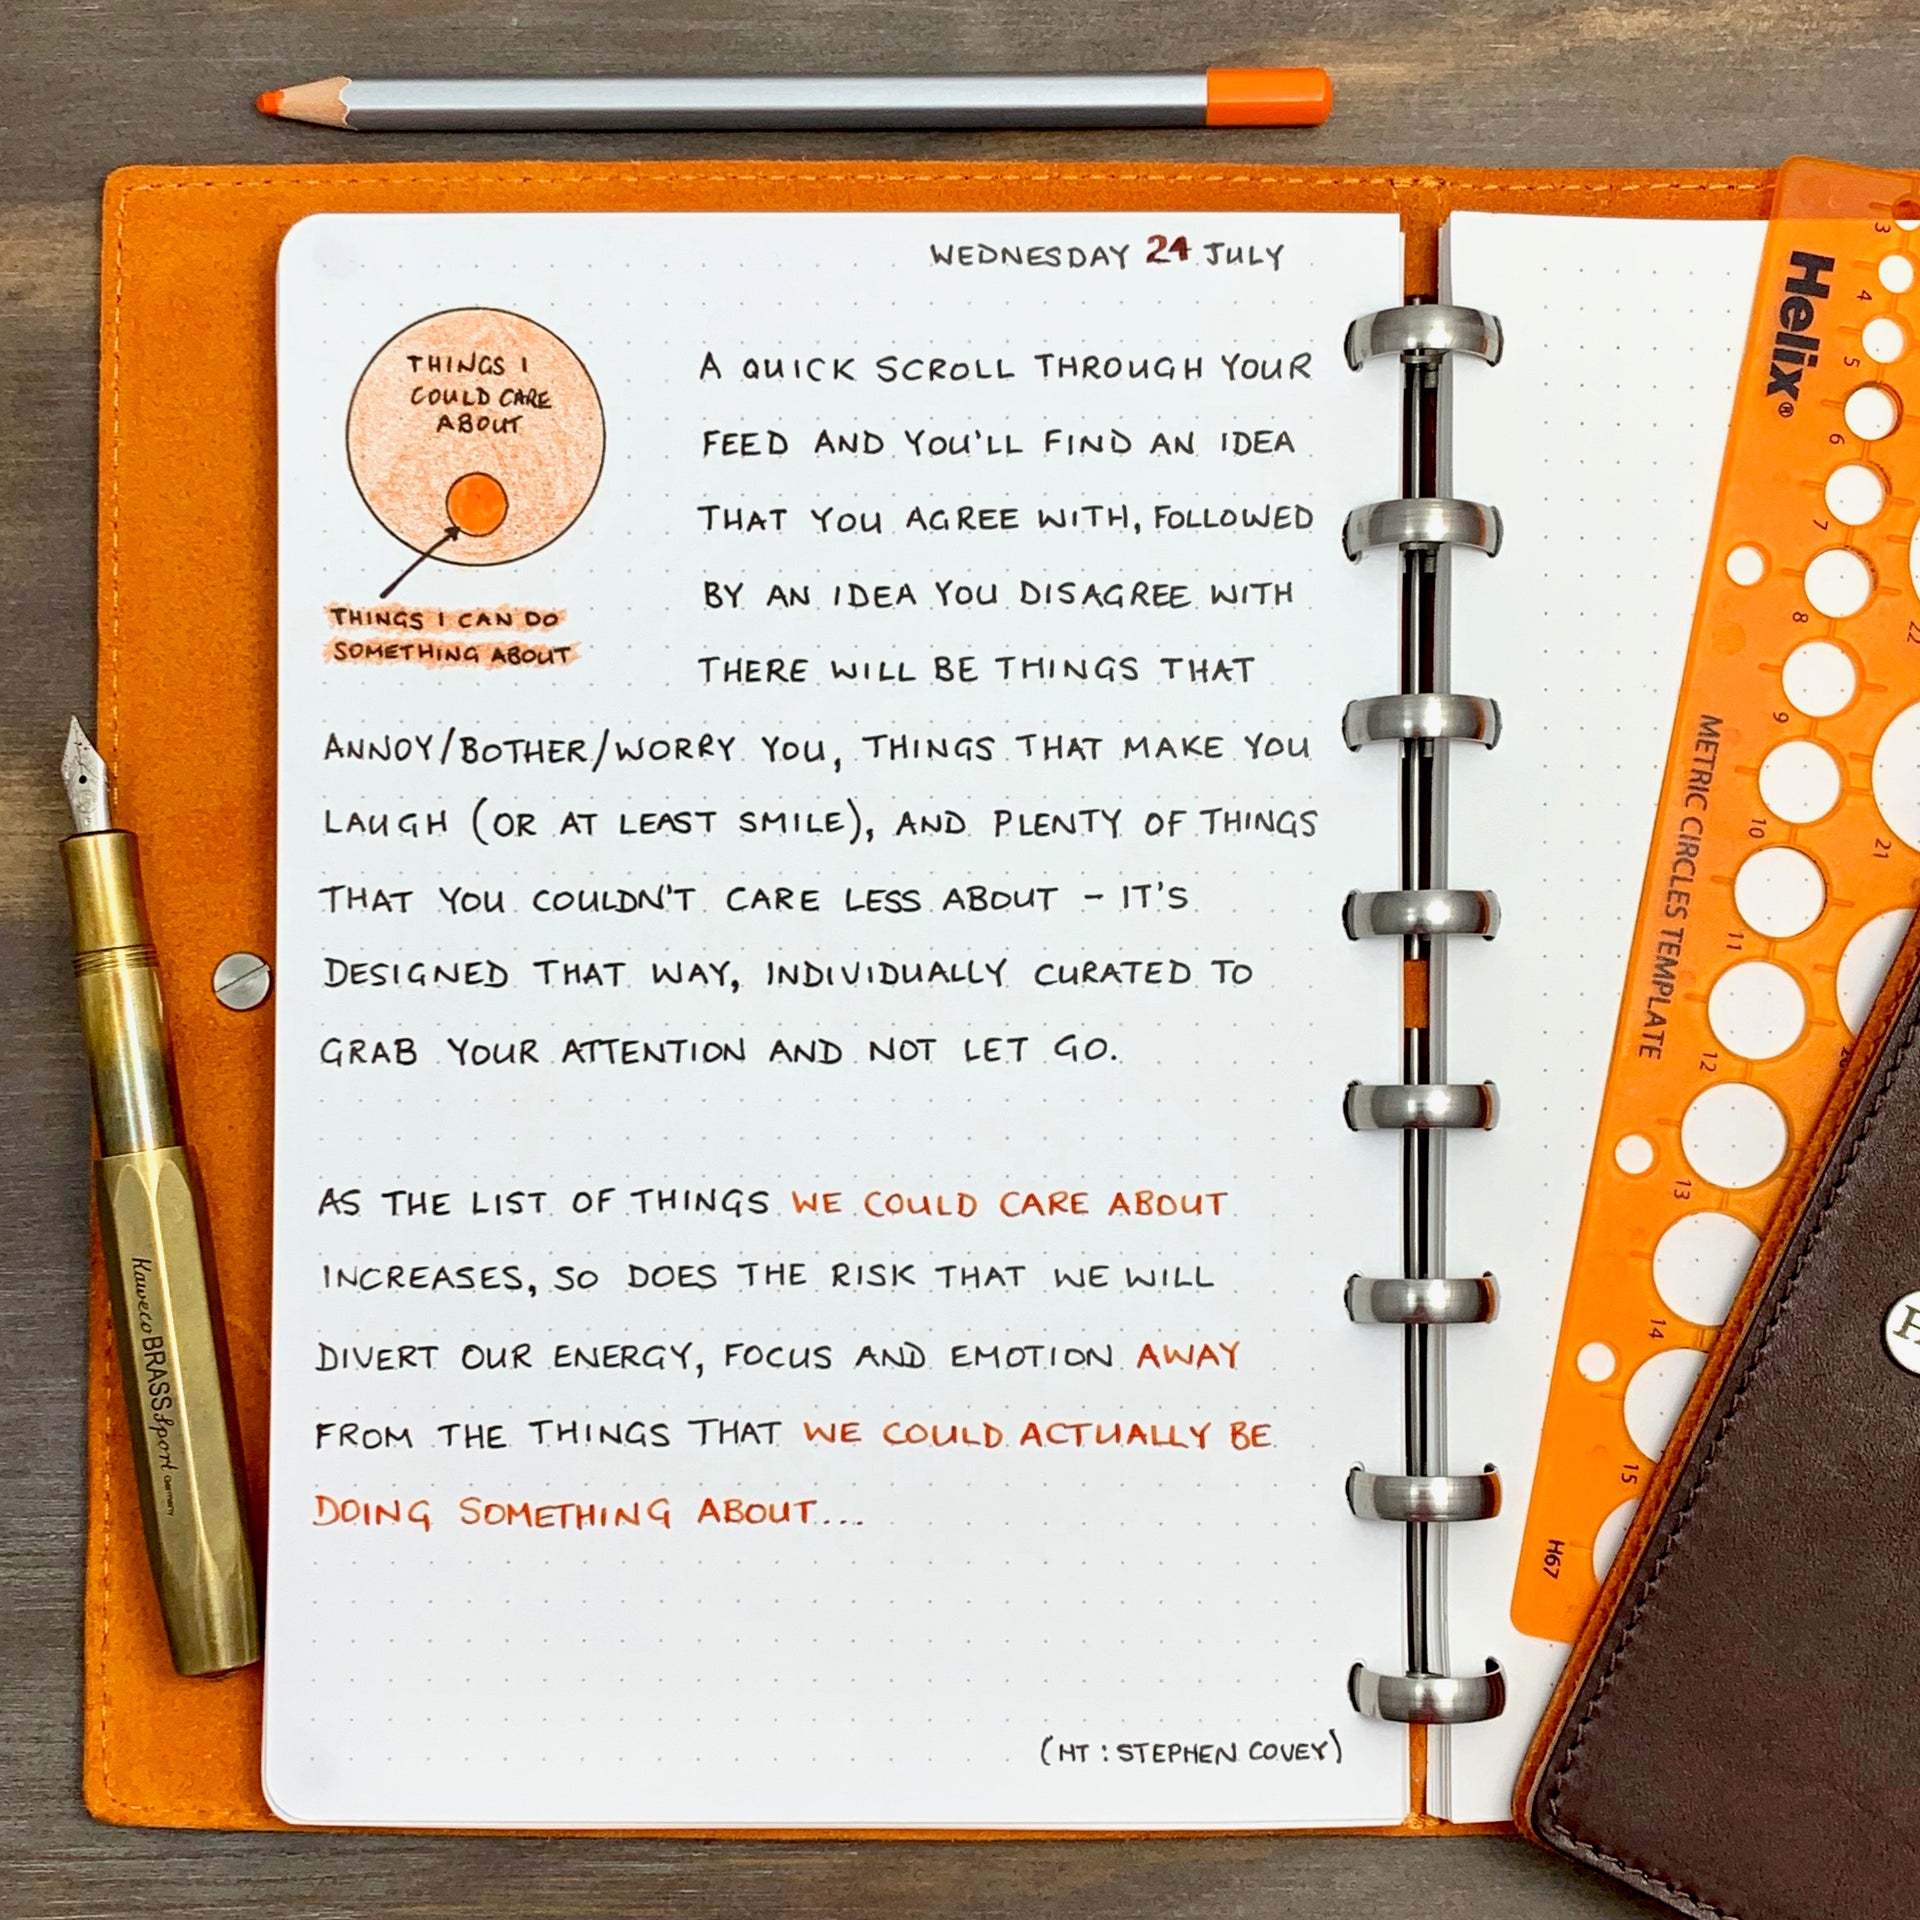 WEDNESDAY 24 JULY
THINGS I
COULD CARE
ABOUT
THINGS I CAN DO
SOMETHING ABOUT
A QUICK SCROLL THROUGH YOUR
FEED AND YOU'LL FIND AN IDEA
THAT YOU AGREE WITH, FOLLOWED
BY AN IDEA YOU DISAGREE WITH
THERE WILL BE THINGS THAT
ANNOY/BOTHER/WORRY YOU, THINGS THAT MAKE YOU
LAUGH (OR AT LEAST SMILE), AND PLENTY OF THINGS
THAT YOU COULDN'T CARE LESS ABOUT - IT'S
DESIGNED THAT WAY, INDIVIDUALLY CURATED TO
GRAB YOUR ATTENTION AND NOT LET GO.
AS THE LIST OF THINGS WE COULD CARE ABOUT
INCREASES, SO DOES THE RISK THAT WE WILL
DIVERT OUR ENERGY, FOCUS AND EMOTION AWAY
FROM THE THINGS THAT WE COULD ACTUALLY BE
DOING SOMETHING ABOUT...
(HT : STEPHEN COVEY)
Kaweco BRASS Sport Germany
Helix®
METRIC CIRCLES TEMPLATE
H67
3
4
5
6
7
8
9
10
11
12
13
14
15
22
21
H